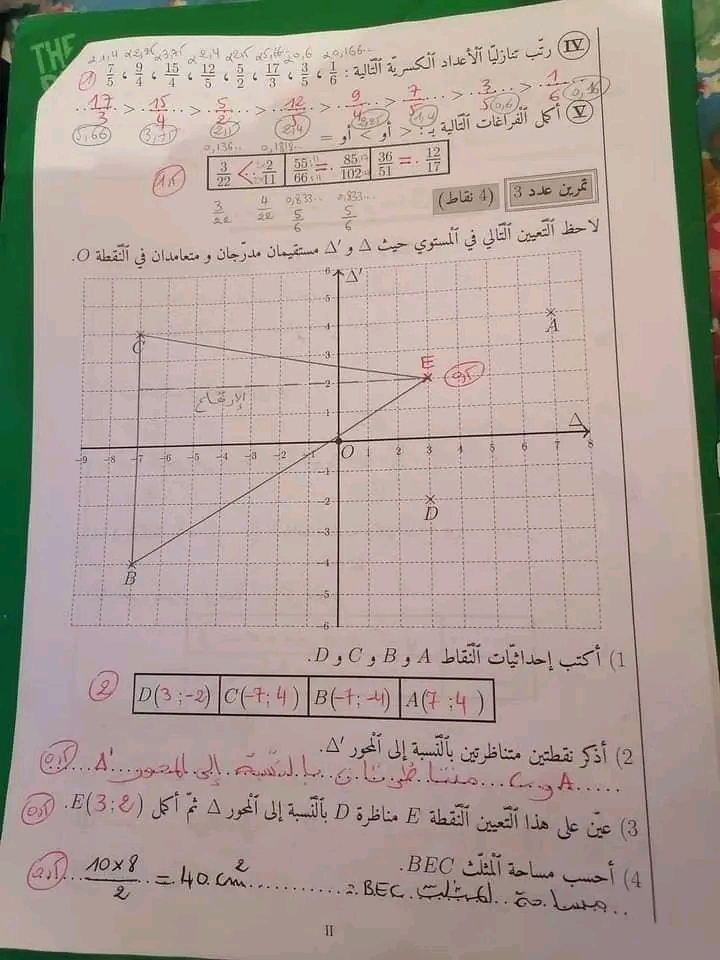 THE
21,4 22,25 23,75 22,4 22,5 25,66 20,6 20,166..
IV رتّب تنازليّا الأعداد الكسريّة التّالية : 1/6 ، 3/5 ، 17/3 ، 5/2 ، 12/5 ، 15/4 ، 9/4 ، 7/5
1
17/3 > 15/4 > 5/2 > 12/5 > 9/4 > 7/5 > 3/5 > 1/6
5,66 3,75 2,5 2,4 2,25 1,4 0,6 0,16
V أكمل الفراغات التّالية بـ : < أو > أو =
0,136.. 0,1818..
3/22 < 2/11 55/66 = 85/102 36/51 = 12/17
1,5
3/22 4/22 0,833.. 5/6 0,833.. 5/6
تمرين عدد 3 (4 نقاط)
لاحظ التّعيين التّالي في المستوي حيث Δ و Δ' مستقيمان مدرّجان و متعامدان في النّقطة O.
6 Δ'
5
4 C A
3 E
2 0,5
الإرتفاع
1
-9 -8 -7 -6 -5 -4 -3 -2 -1 O 1 2 3 4 5 6 7 8 Δ
-1
-2 D
-3
-4 B
-5
-6
1) أكتب إحداثيّات النّقاط A و B و C و D.
2
D(3 ;-2) C(-7; 4) B(-7; -4) A(7 ;4)
2) أذكر نقطتين متناظرتين بالنّسبة إلى المحور Δ'.
0,5
A و C متناظرتان بالنّسبة إلى المحور Δ'
3) عيّن على هذا التّعيين النّقطة E مناظرة D بالنّسبة إلى المحور Δ ثمّ أكمل E(3;2).
0,5
4) أحسب مساحة المثلّث BEC.
مساحة المثلث BEC = 10×8/2 = 40 cm²
II